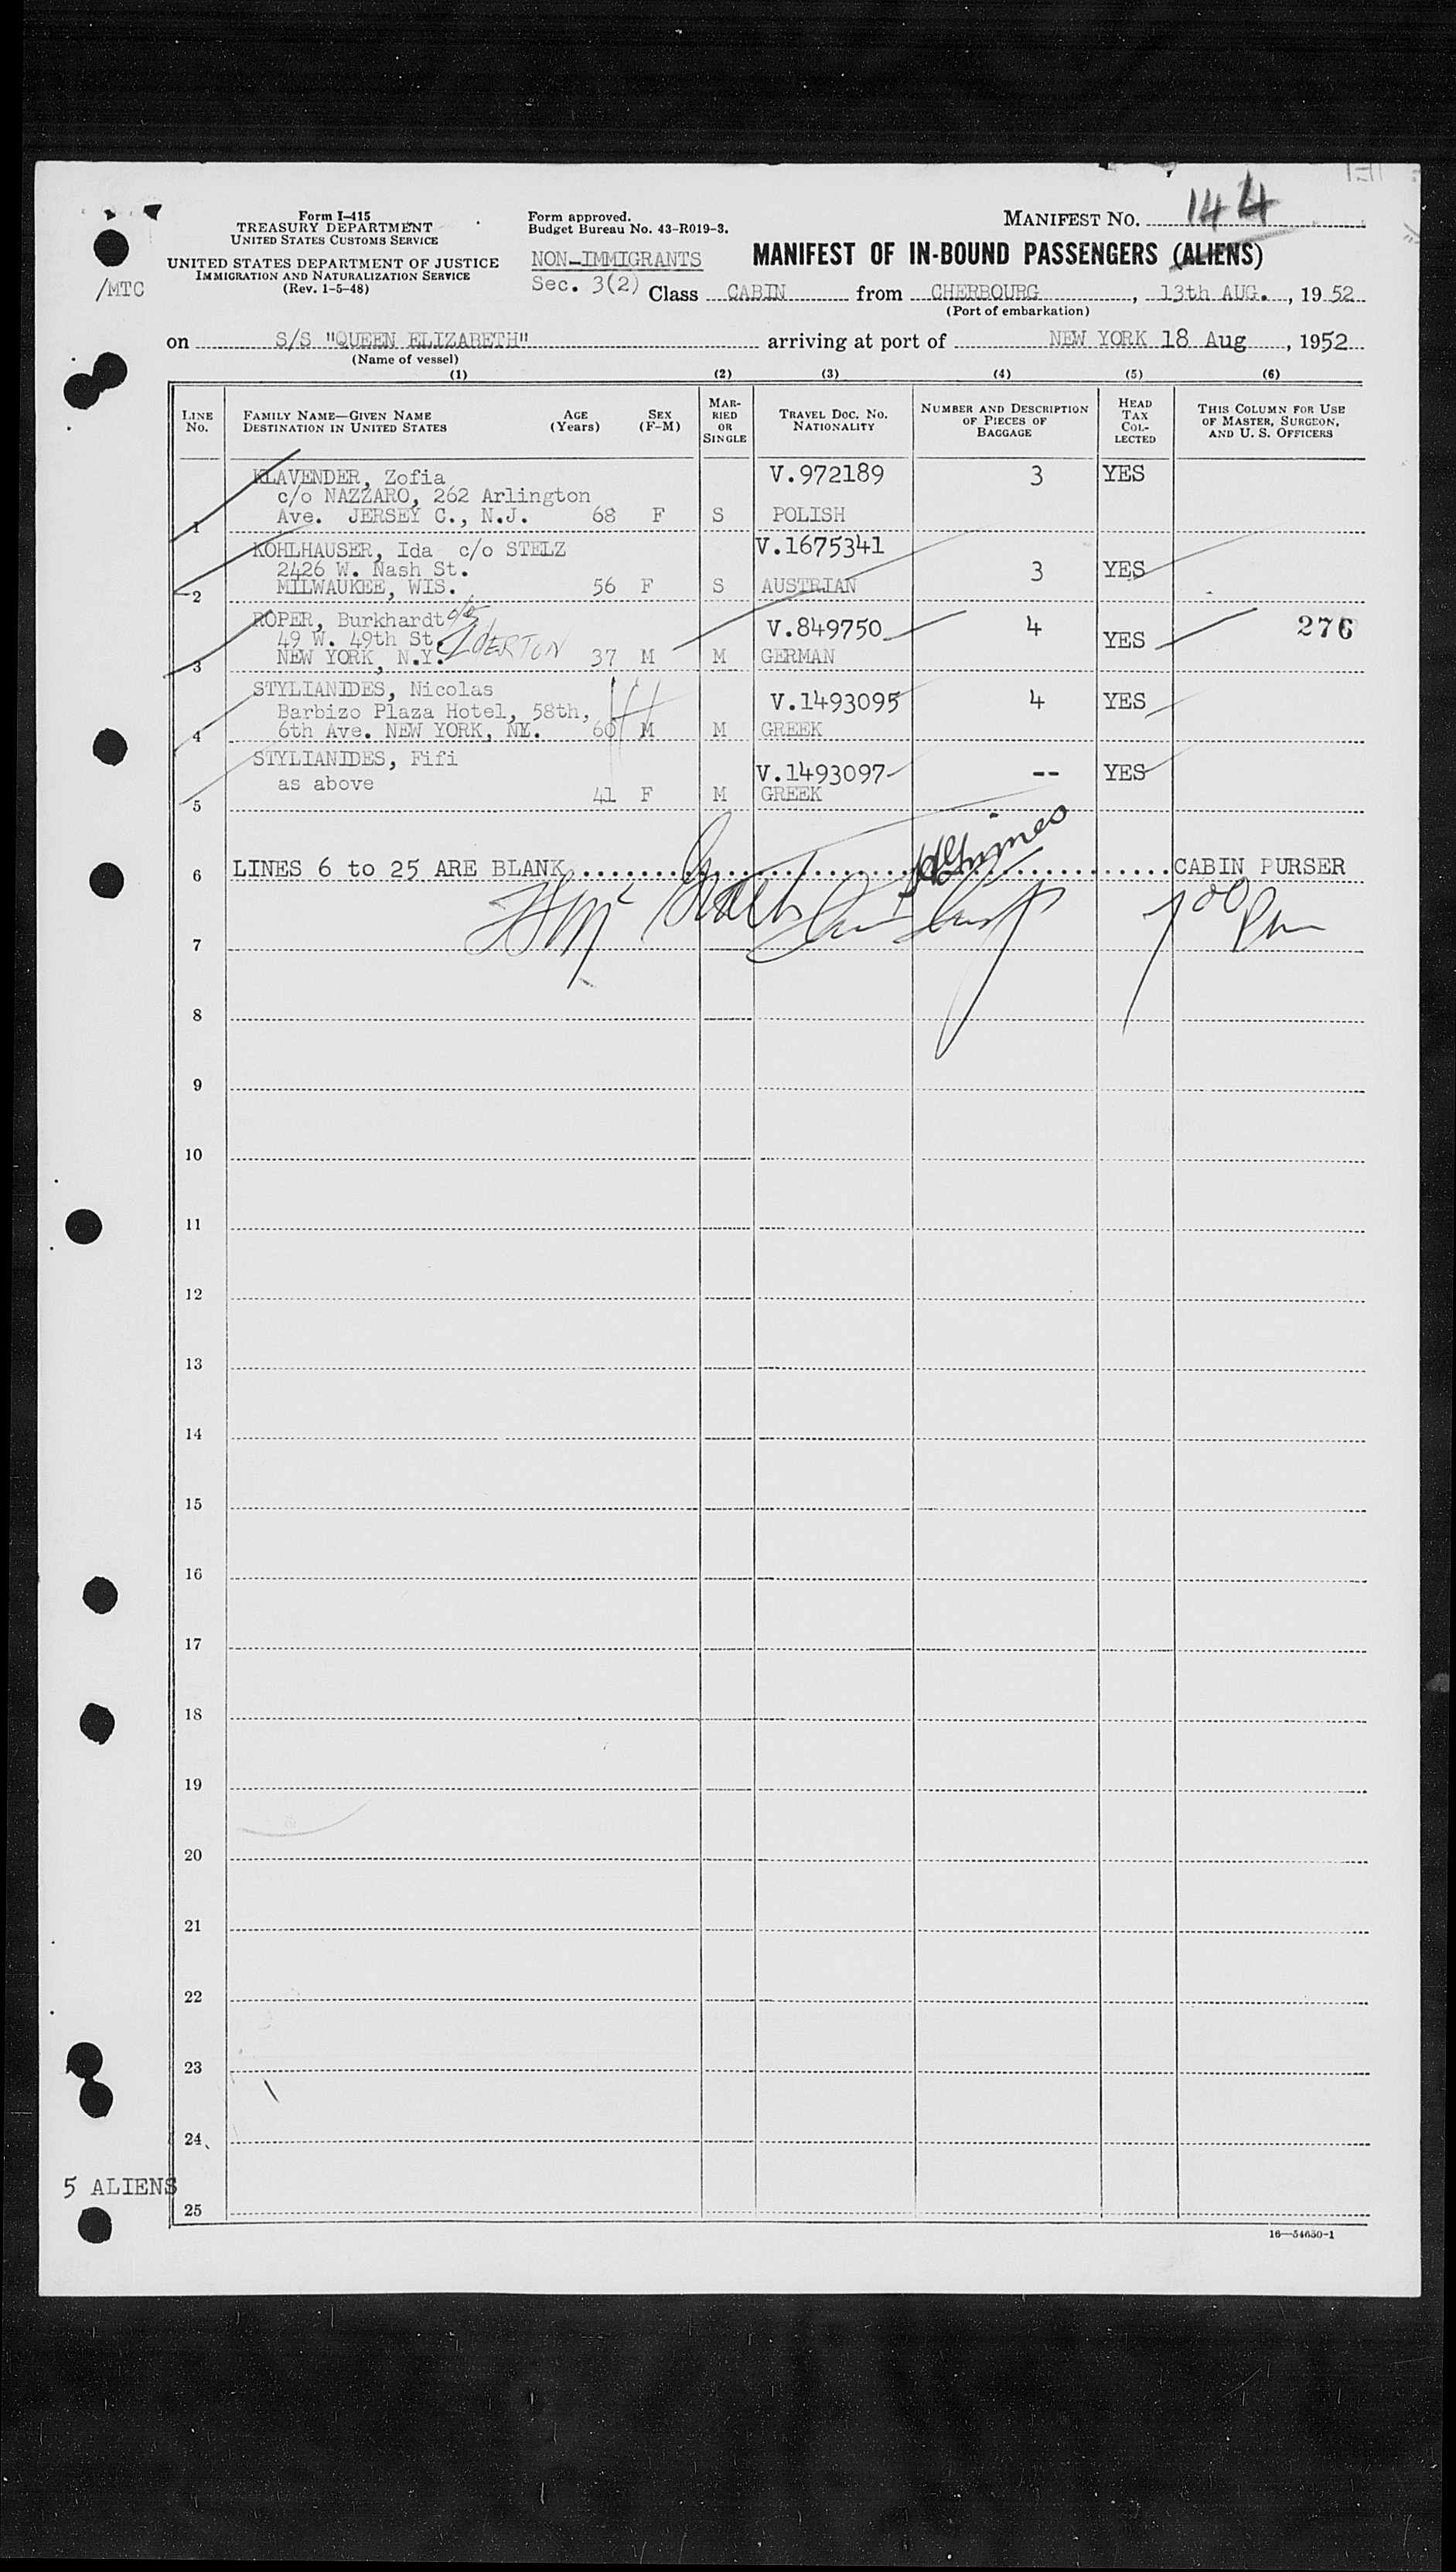 Form I-415
TREASURY DEPARTMENT
UNITED STATES CUSTOMS SERVICE
UNITED STATES DEPARTMENT OF JUSTICE
IMMIGRATION AND NATURALIZATION SERVICE
(Rev. 1-5-48)
/MTC
Form approved.
Budget Bureau No. 43-R019-3.
MANIFEST NO. 144
NON-IMMIGRANTS
Sec. 3(2)
MANIFEST OF IN-BOUND PASSENGERS (ALIENS)
Class CABIN from CHERBOURG, 13th AUG., 1952
(Port of embarkation)
on S/S "QUEEN ELIZABETH" arriving at port of NEW YORK 18 Aug, 1952
(Name of vessel)
(1) (2) (3) (4) (5) (6)
LINE NO. FAMILY NAME—GIVEN NAME DESTINATION IN UNITED STATES AGE (Years) SEX (F-M) MARRIED OR SINGLE TRAVEL DOC. NO. NATIONALITY NUMBER AND DESCRIPTION OF PIECES OF BAGGAGE HEAD TAX COLLECTED THIS COLUMN FOR USE OF MASTER, SURGEON, AND U. S. OFFICERS
KLAVENDER, Zofia V.972189 3 YES
c/o NAZZARO, 262 Arlington
1 Ave. JERSEY C., N.J. 68 F S POLISH
KOHLHAUSER, Ida c/o STELZ V.1675341
2426 W. Nash St. 3 YES
2 MILWAUKEE, WIS. 56 F S AUSTRIAN
ROPER, Burkhardt c/o V.849750 4 276
49 W. 49th St. YES
3 NEW YORK, N.Y. 37 M M GERMAN
STYLIANIDES, Nicolas V.1493095 4 YES
Barbizo Plaza Hotel, 58th,
4 6th Ave. NEW YORK, NY. 60 M M GREEK
STYLIANIDES, Fifi V.1493097 -- YES
as above
5 41 F M GREEK
6 LINES 6 to 25 ARE BLANK CABIN PURSER
7
8
9
10
11
12
13
14
15
16
17
18
19
20
21
22
23
24
5 ALIENS
25
16—54630-1